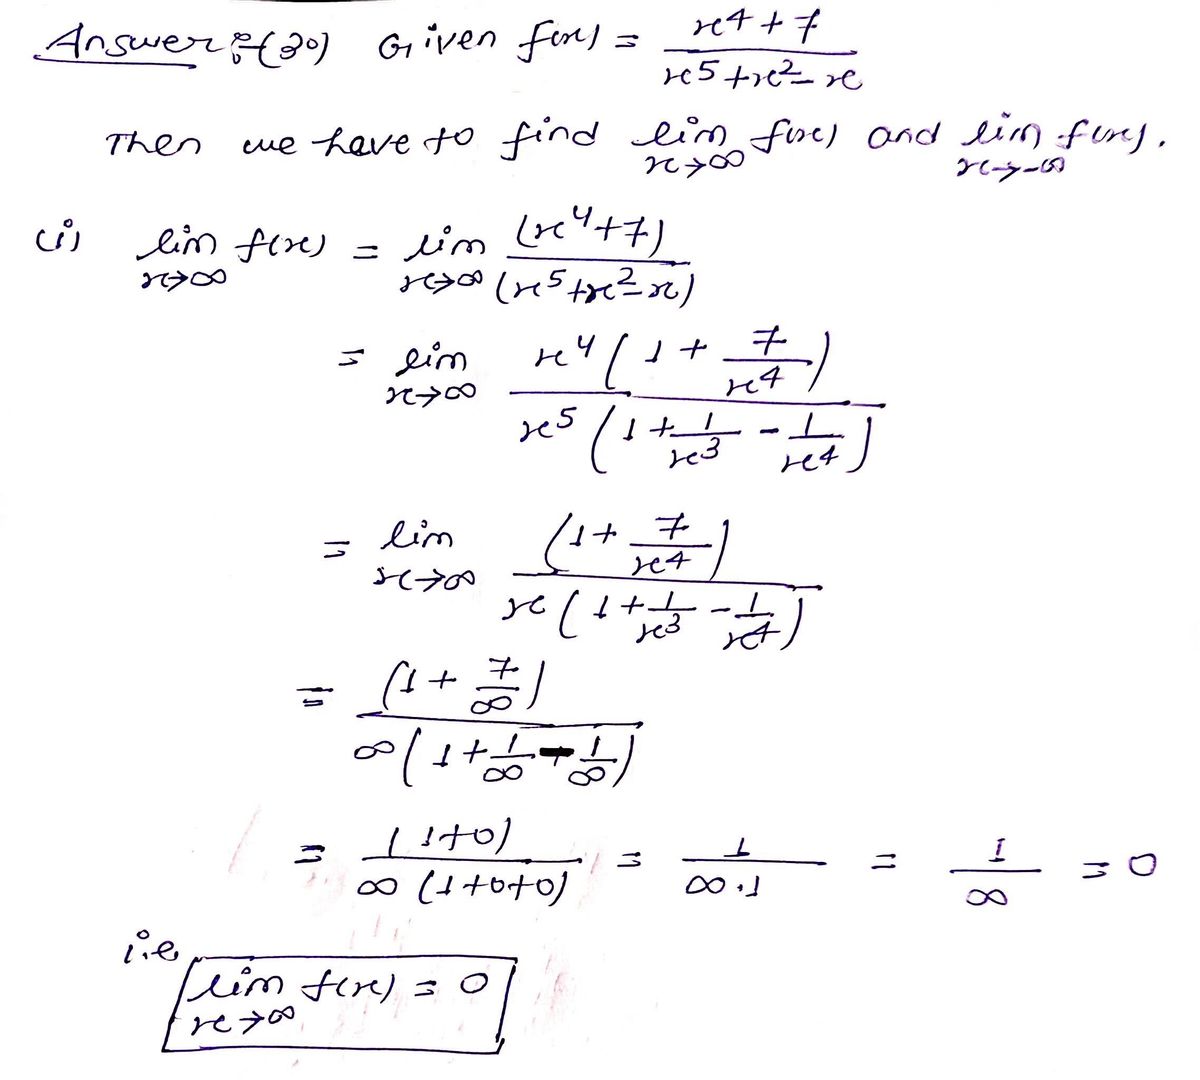 Answer :- (30) Given f(x) = (x^4 + 7)/(x^5 + x^2 - x)
Then we have to find lim x→∞ f(x) and lim x→-∞ f(x).
(i) lim x→∞ f(x) = lim x→∞ (x^4 + 7)/(x^5 + x^2 - x)
= lim x→∞ x^4 (1 + 7/x^4) / x^5 (1 + 1/x^3 - 1/x^4)
= lim x→∞ (1 + 7/x^4) / x (1 + 1/x^3 - 1/x^4)
= (1 + 7/∞) / ∞ (1 + 1/∞ - 1/∞)
= (1+0) / ∞ (1+0+0) = 1/∞.1 = 1/∞ = 0
i.e.
lim x→∞ f(x) = 0